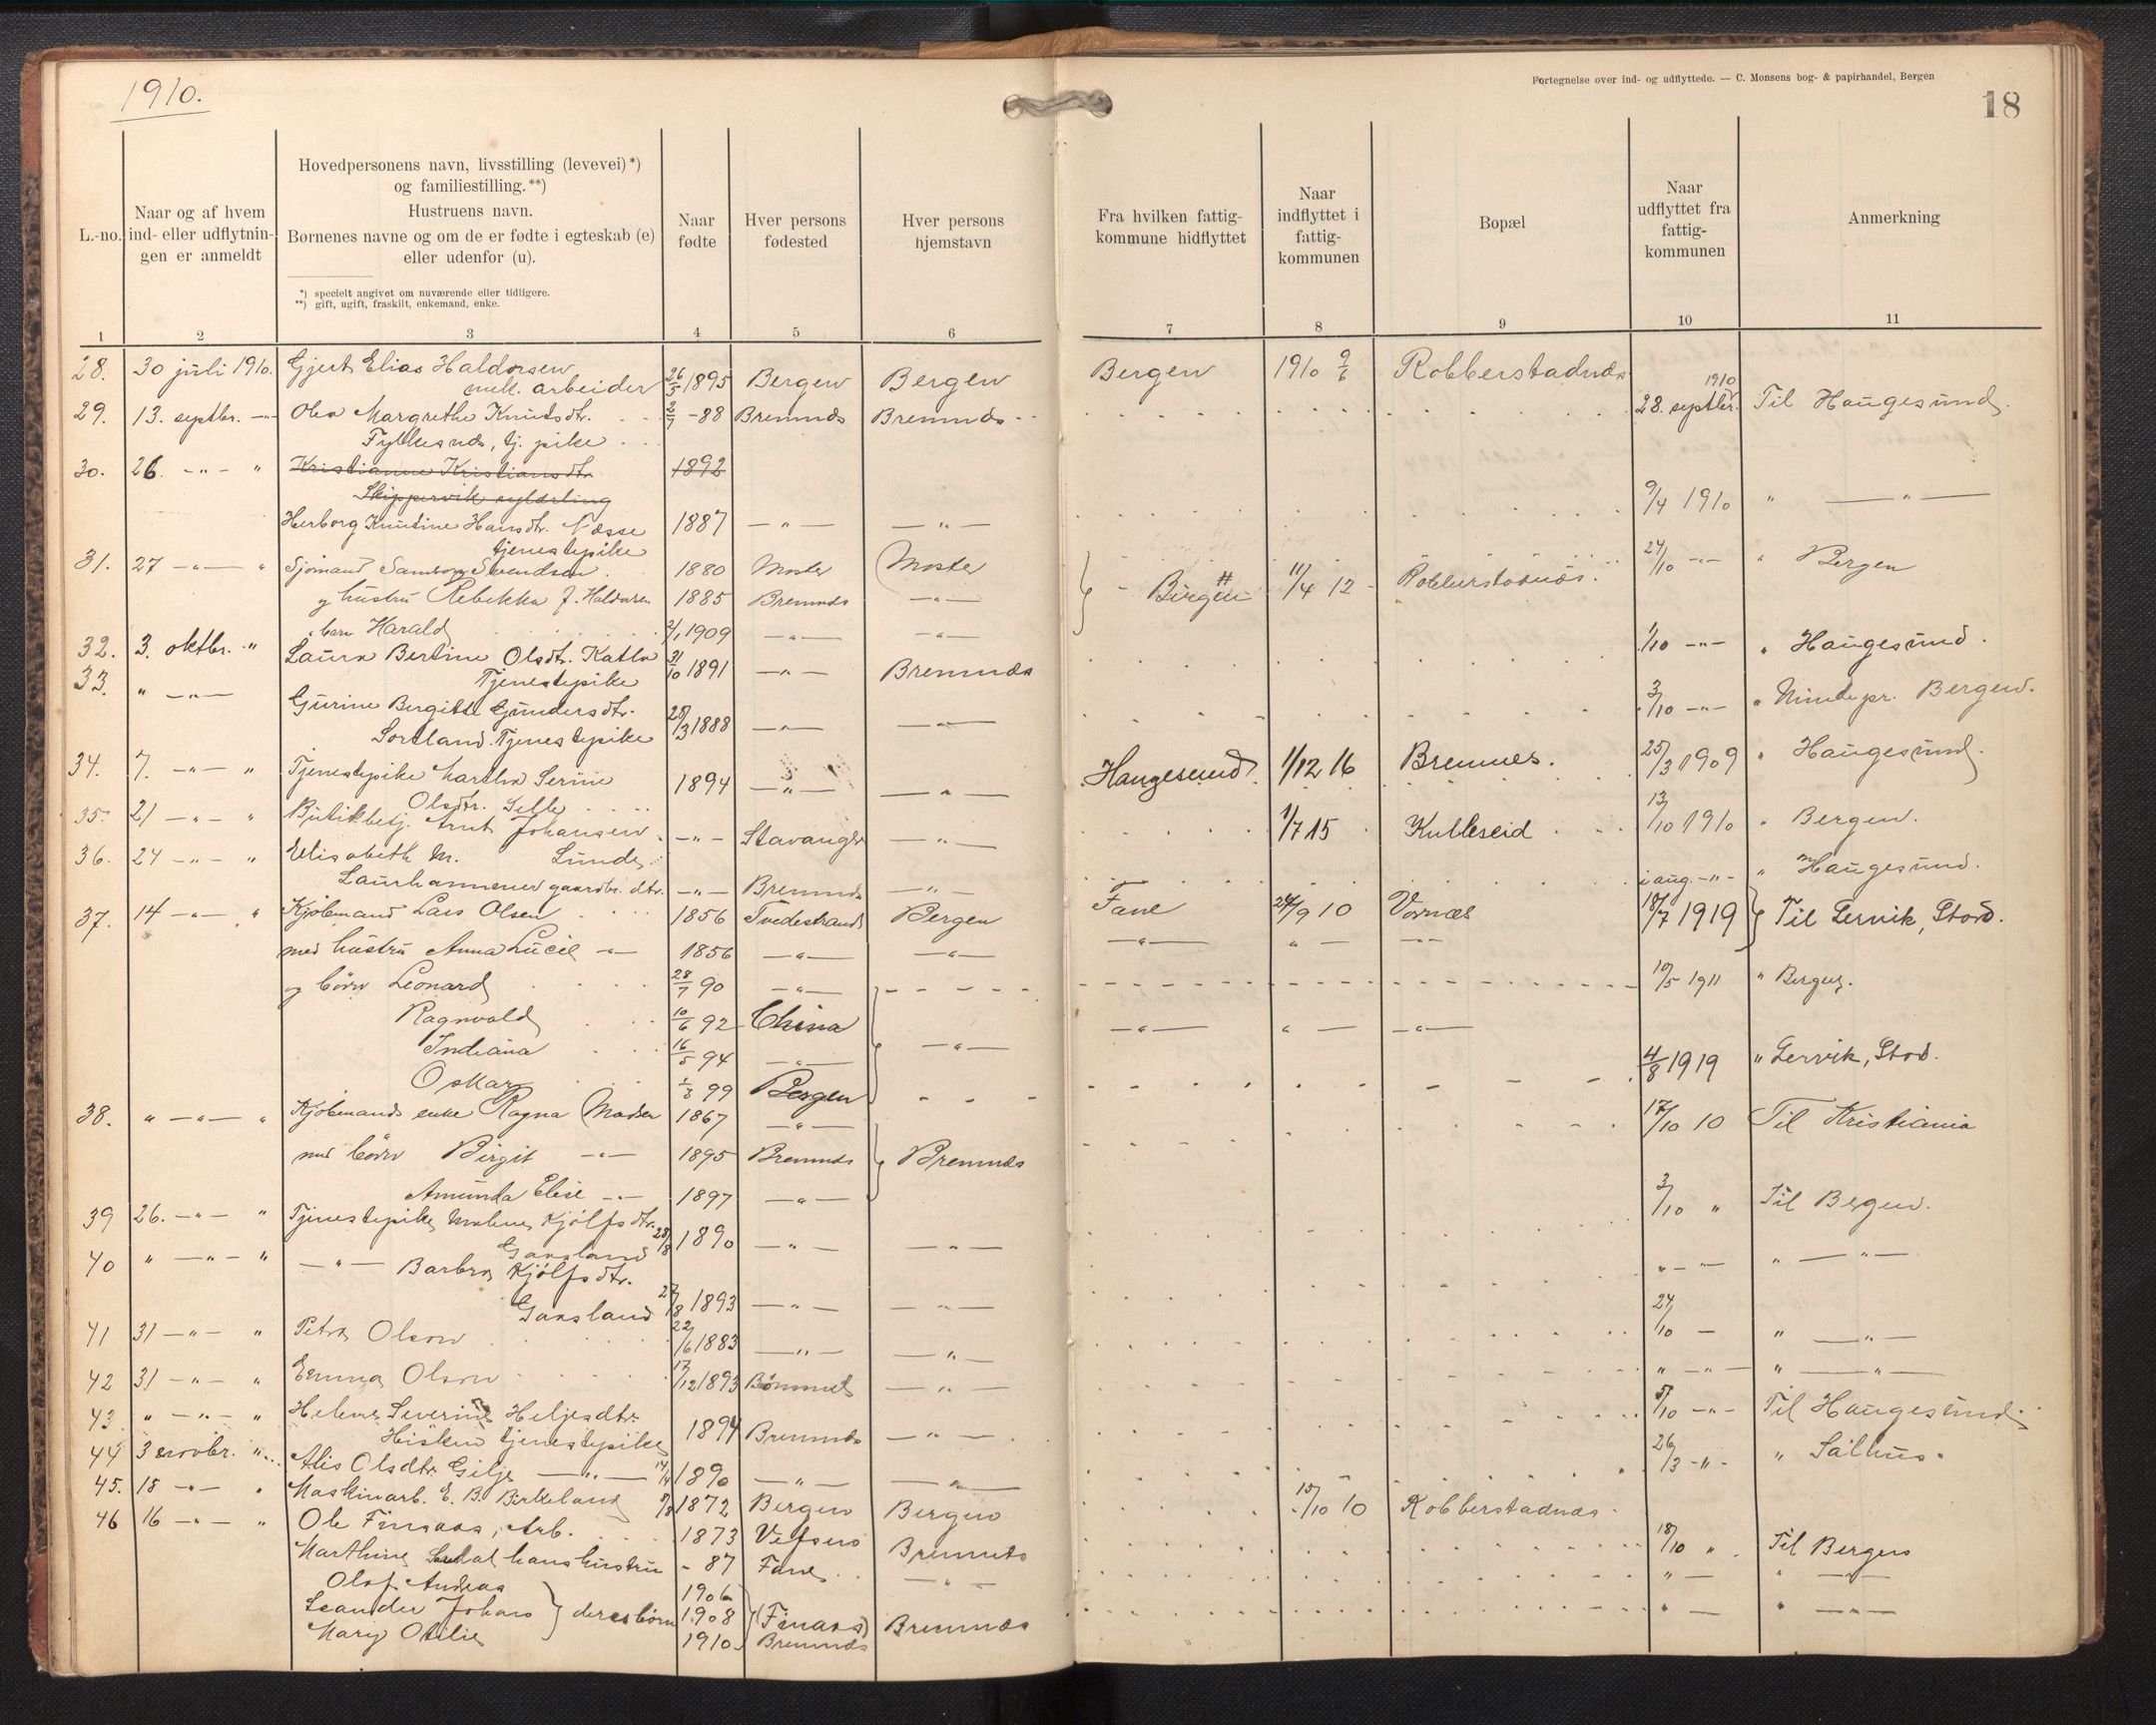 1910.
Fortegnelse over ind- og udflyttede. — C. Monsens bog- & papirhandel, Bergen
18
L.-no.
Naar og af hvem
ind- eller udflytnin-
gen er anmeldt
Hovedpersonens navn, livsstilling (levevei)*)
og familiestilling.**)
Hustruens navn.
Børnenes navne og om de er fødte i egteskab (e)
eller udenfor (u).
*) specielt angivet om nuværende eller tidligere.
**) gift, ugift, fraskilt, enkemand, enke.
Naar
fødte
Hver persons
fødested
Hver persons
hjemstavn
Fra hvilken fattig-
kommune hidflyttet
Naar
indflyttet i
fattig-
kommunen
Bopæl
Naar
udflyttet fra
fattig-
kommunen
Anmerkning
1 2 3 4 5 6 7 8 9 10 11
28. 30 juli 1910. Gjert Elias Haldorsen
mek. arbeider 26/5 1895 Bergen Bergen Bergen 1910 9/6 Robberstadnes
29. 13. septbr. — Olea Margrethe Knutsdtr. 2/7 -88 Bremnes Bremnes 1910 28. septbr. Til Haugesund.
Fylkesnes, tj. pike
30. 26. -"- " Kristianne Kristiansdtr. 1892
Skippervik
Herborg Knutine Hansdtr. Næsse 1887 -"- -"- 9/4 1910 " -"-
tjenestepike
31. 27 -"- " Sjømand Samson Svendsen 1880 Moster Moster Bergen 11/4 12 Robberstadnes 24/10 -"- " Bergen
og hustru Rebekka J. Haldorsen 1885 Bremnes -"-
barn Harald 2/1 1909 -"- -"-
32. 3. oktbr. " Laura Bertine Olsdtr. Katla 31/10 1891 -"- Bremnes 1/10 -"- " Haugesund.
Tjenestepike
33. " -"- Gurine Bergitte Gundersdtr. 28/3 1888 -"- -"- 3/10 -"- " Minde pr. Bergen.
Sortland. Tjenestepike
34. 7. -"- " Tjenestepike Martha Serine 1894 -"- -"- Haugesund 1/12 16 Bremnes. 25/3 1909 " Haugesund.
Olsdtr. Selle
35. 21 -"- " Butikbetj. Arnt Johansen -"- Stavanger -"- 1/7 15 Kulleseid 13/10 1910 " Bergen.
Lunde
36. 24 -"- " Elisabeth M.
Laurhammer gaardbr. dtr. -"- Bremnes -"- i aug. -"- " Haugesund.
37. 14 -"- " Kjøbmand Lars Olsen 1856 Tvedestrand Bergen Fane 24/9 10 Vornes 18/7 1919 Til Lervik, Stord.
med hustru Anna Lucie -"- 1856 -"- -"- -"- " - -"-
og børn Leonard 28/7 90 -"- 10/5 1911 " Bergen.
Ragnvald 10/6 92 China -"- " - -"-
Indiana 16/5 94 -"- -"-
Oskar 1/3 99 Bergen 4/8 1919 " Lervik, Stord.
38. " -"- " Kjøbmands enke Ragna Madsen 1867 -"- 17/10 10 Til Kristiania
med børn Birgit -"- 1895 Bremnes Bremnes
Amunda Elise -"- 1897 -"-
39 26. -"- " Tjenestepike Malene Kjølfsdtr. 28/8 1890 -"- -"- 3/10 " Til Bergen.
Gaasland
40 " -"- " -"- Barbra Kjølfsdtr. " - " " -"-
Gaasland 27/8 1893 -"- -"-
41 31 -"- " Petra Olsen 22/6 1883 -"- -"- 24/10 - " -"-
42 31 -"- " Emma Olsen 17/12 1893 Bømmel -"- " -"- " -"-
43. " -"- " Helene Severine Heljesdtr. 5/10 -"- Til Haugesund.
Hisken tjenestepike 1894 Bremnes -"-
44 3 novbr. " Alis Olsdtr. Gilje -"- 14/4 1890 -"- -"- 26/3 -"- " Salhus.
45. 15 -"- " Maskinarb. E. B. Birkeland 9/8 1872 Bergen Bergen 15/10 10 Robberstadnes
46 16 -"- " Ole Finnaas, Arb. 1873 Vefsen Bremnes 18/10 " Til Bergen
Marthine hans hustru - 87 Fane -"- " - " -"-
Olaf Andreas 1906
Leander Johan } deres børn 1908 (Finaas) Bremnes " - " -"-
Mary Otilie 1910 Bremnes